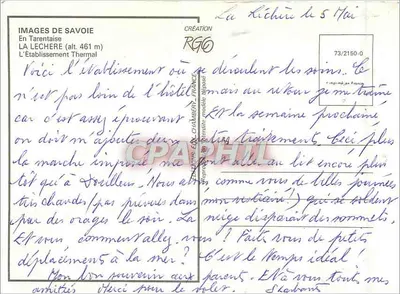 IMAGES DE SAVOIE
En Tarentaise
LA LECHERE (alt. 461 m)
L'Établissement Thermal
CRÉATION
RGG
La Léchère le 5 Mai
73/2150-G
Voici l'établissement où se déroulent les soins. Ce
n'est pas loin de l'hôtel mais au retour je me traîne
car c'est assez éprouvant Et la semaine prochaine
on doit m'ajouter deux autres traitements. Ceci plus
la marche au lit encore plus
tôt qu'à Nous avons comme vous de belles journées
très chaudes (pas prévues dans mon vestiaire!) qui se soldent
par des orages le soir. La neige disparaît des sommets.
Et vous, comment allez vous? Faites vous de petits
déplacements à la mer? C'est le temps idéal!
Mon bon souvenir aux parents. Et à vous tout mes
amitiés Merci pour le
CPAPHIL